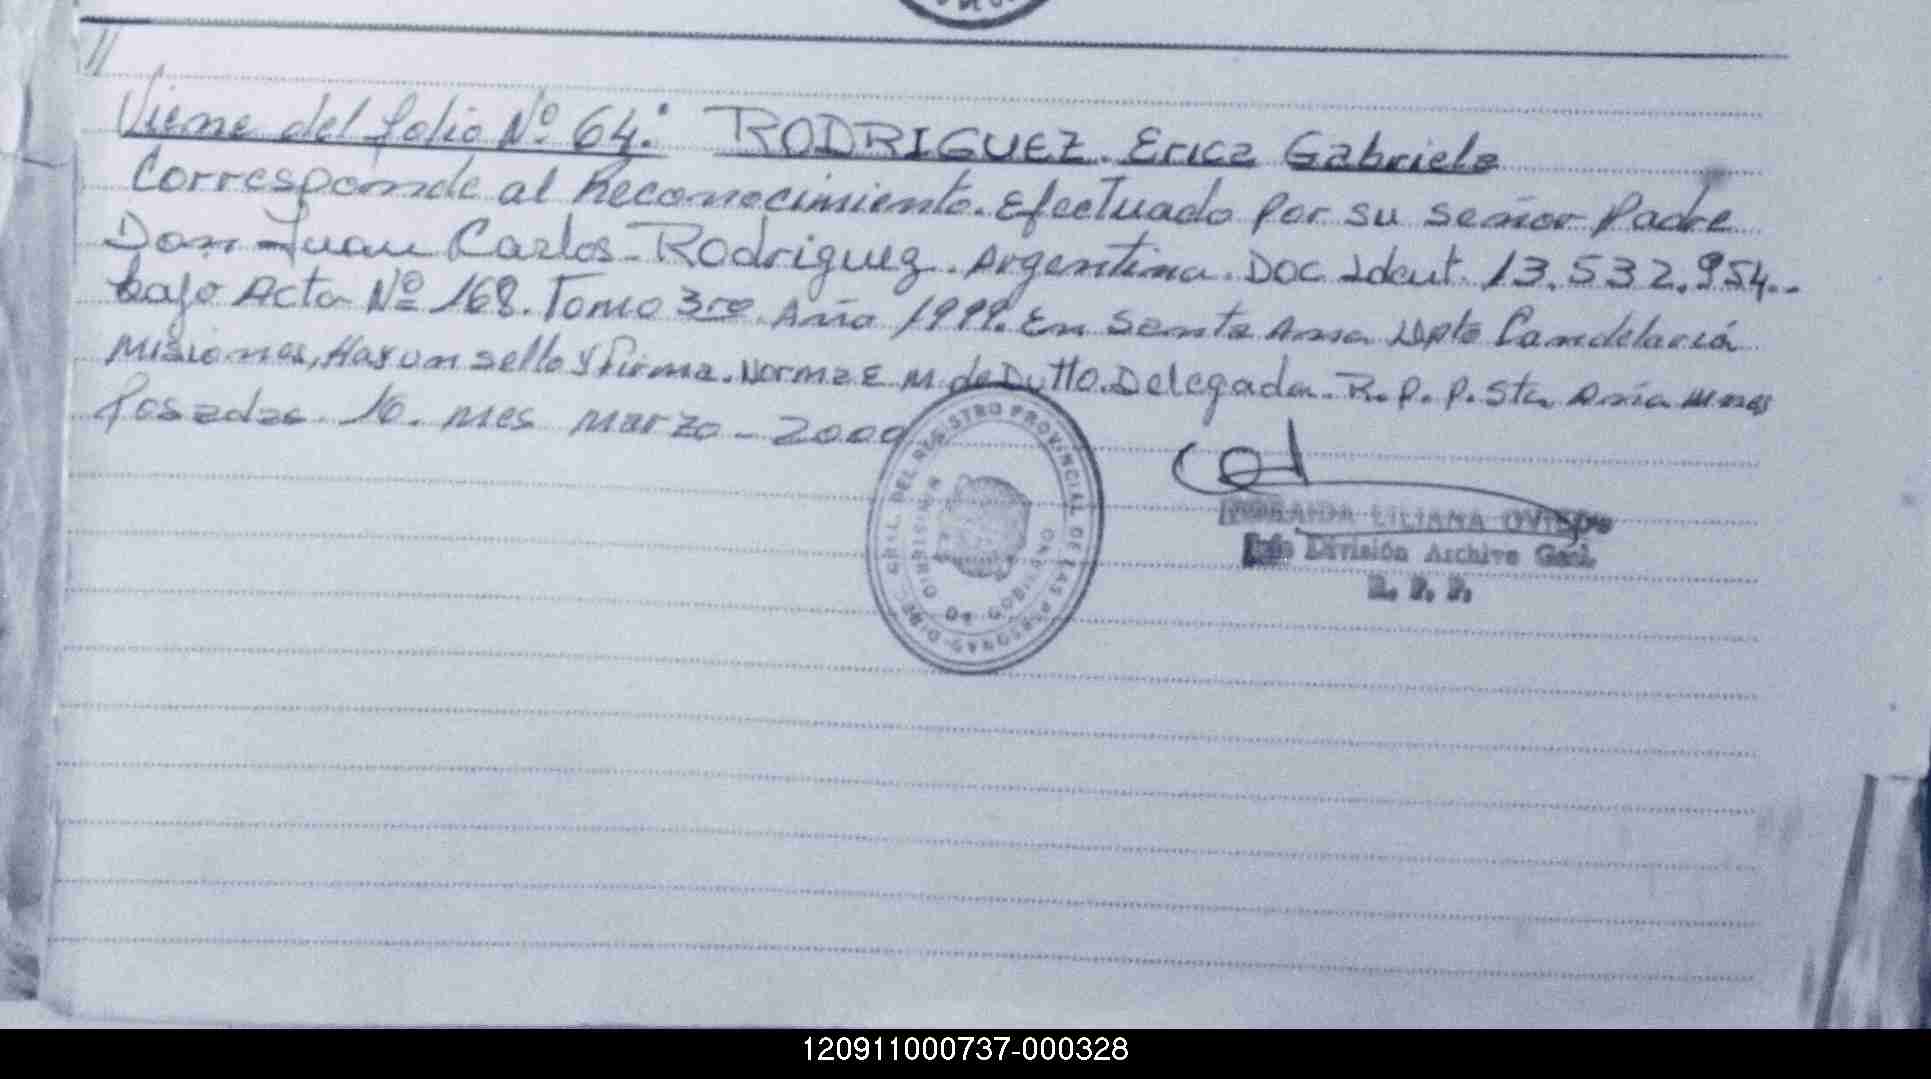 //
Viene del folio Nº 64: RODRIGUEZ. Erica Gabriela
Corresponde al Reconocimiento. Efectuado Por su señor Padre
Don Juan Carlos - Rodriguez. Argentina. Doc Ident. 13.532.954..
bajo Acta Nº 168. Tomo 3ro. Año 1999. En Santa Ana Dpto Candelaria
Misiones, Hay un sello y firma. Norma E M. de Dutto. Delegada. R.P.P. Sta Ana Mnes
Posadas 10. mes marzo - 2000
DIREC. GRAL. DEL REGISTRO PROVINCIAL DE LAS PERSONAS
DE GOBIERNO
LILIANA OVIEDO
Jefe División Archivo Gral.
R. P. P.
120911000737-000328